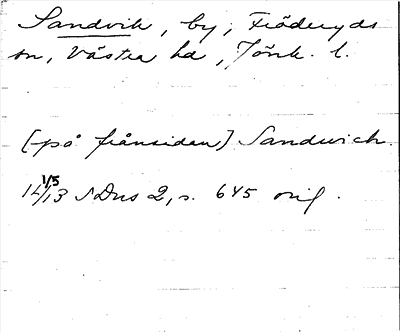 Sandvik, by, Fröderyds
sn, Västra hd, Jönk. l.
[på frånsidan] Sandwich.
14/5 13 SDns 2, s. 645 orig.